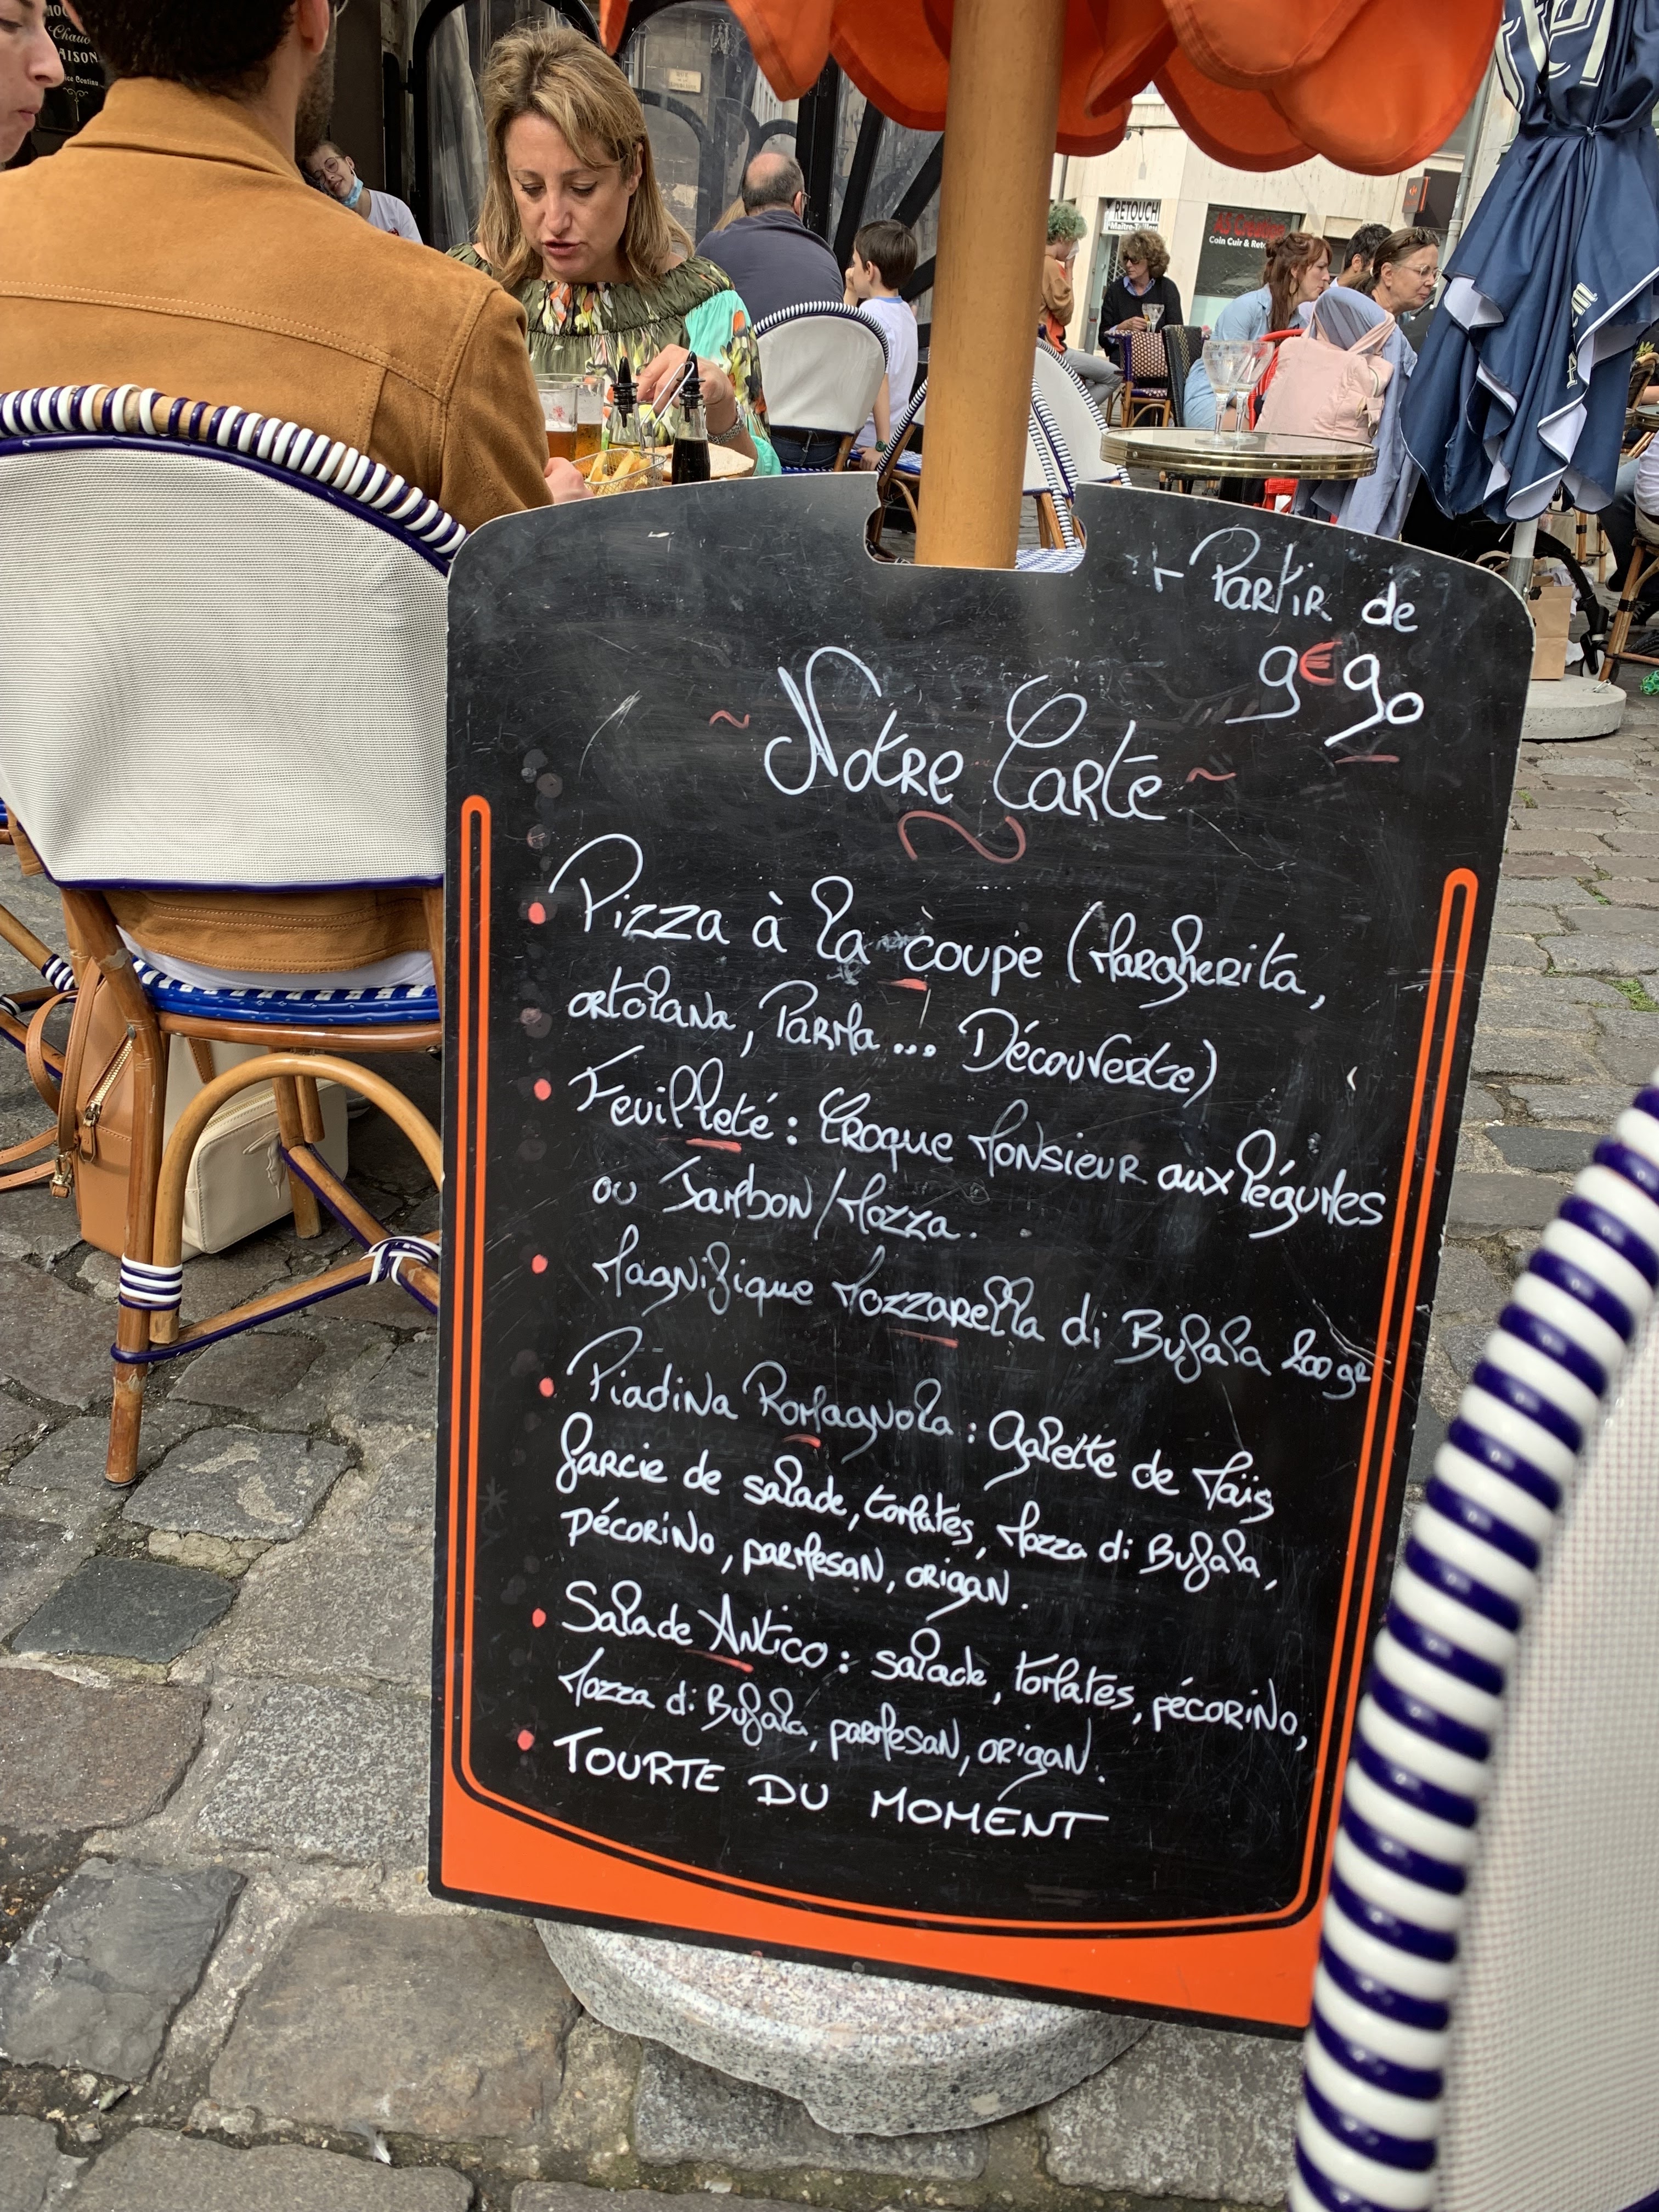 Chaud
AISON
RETOUCH
Maître-Tailleur
AS Création
Coin Cuir & Reto
+ Partir de
9€90
~ Notre Carte ~
Pizza à la coupe (Margherita,
ortolana, Parma... Découverte)
Feuilleté : Croque Monsieur aux légumes
ou Jambon/Mozza.
Magnifique Mozzarella di Bufala 200 gr
Piadina Romagnola : Galette de Maïs
garcie de salade, tomates, Mozza di Bufala,
pécorino, parmesan, origan.
Salade Antico : salade, tomates, pécorino,
Mozza di Bufala, parmesan, origan.
TOURTE DU MOMENT